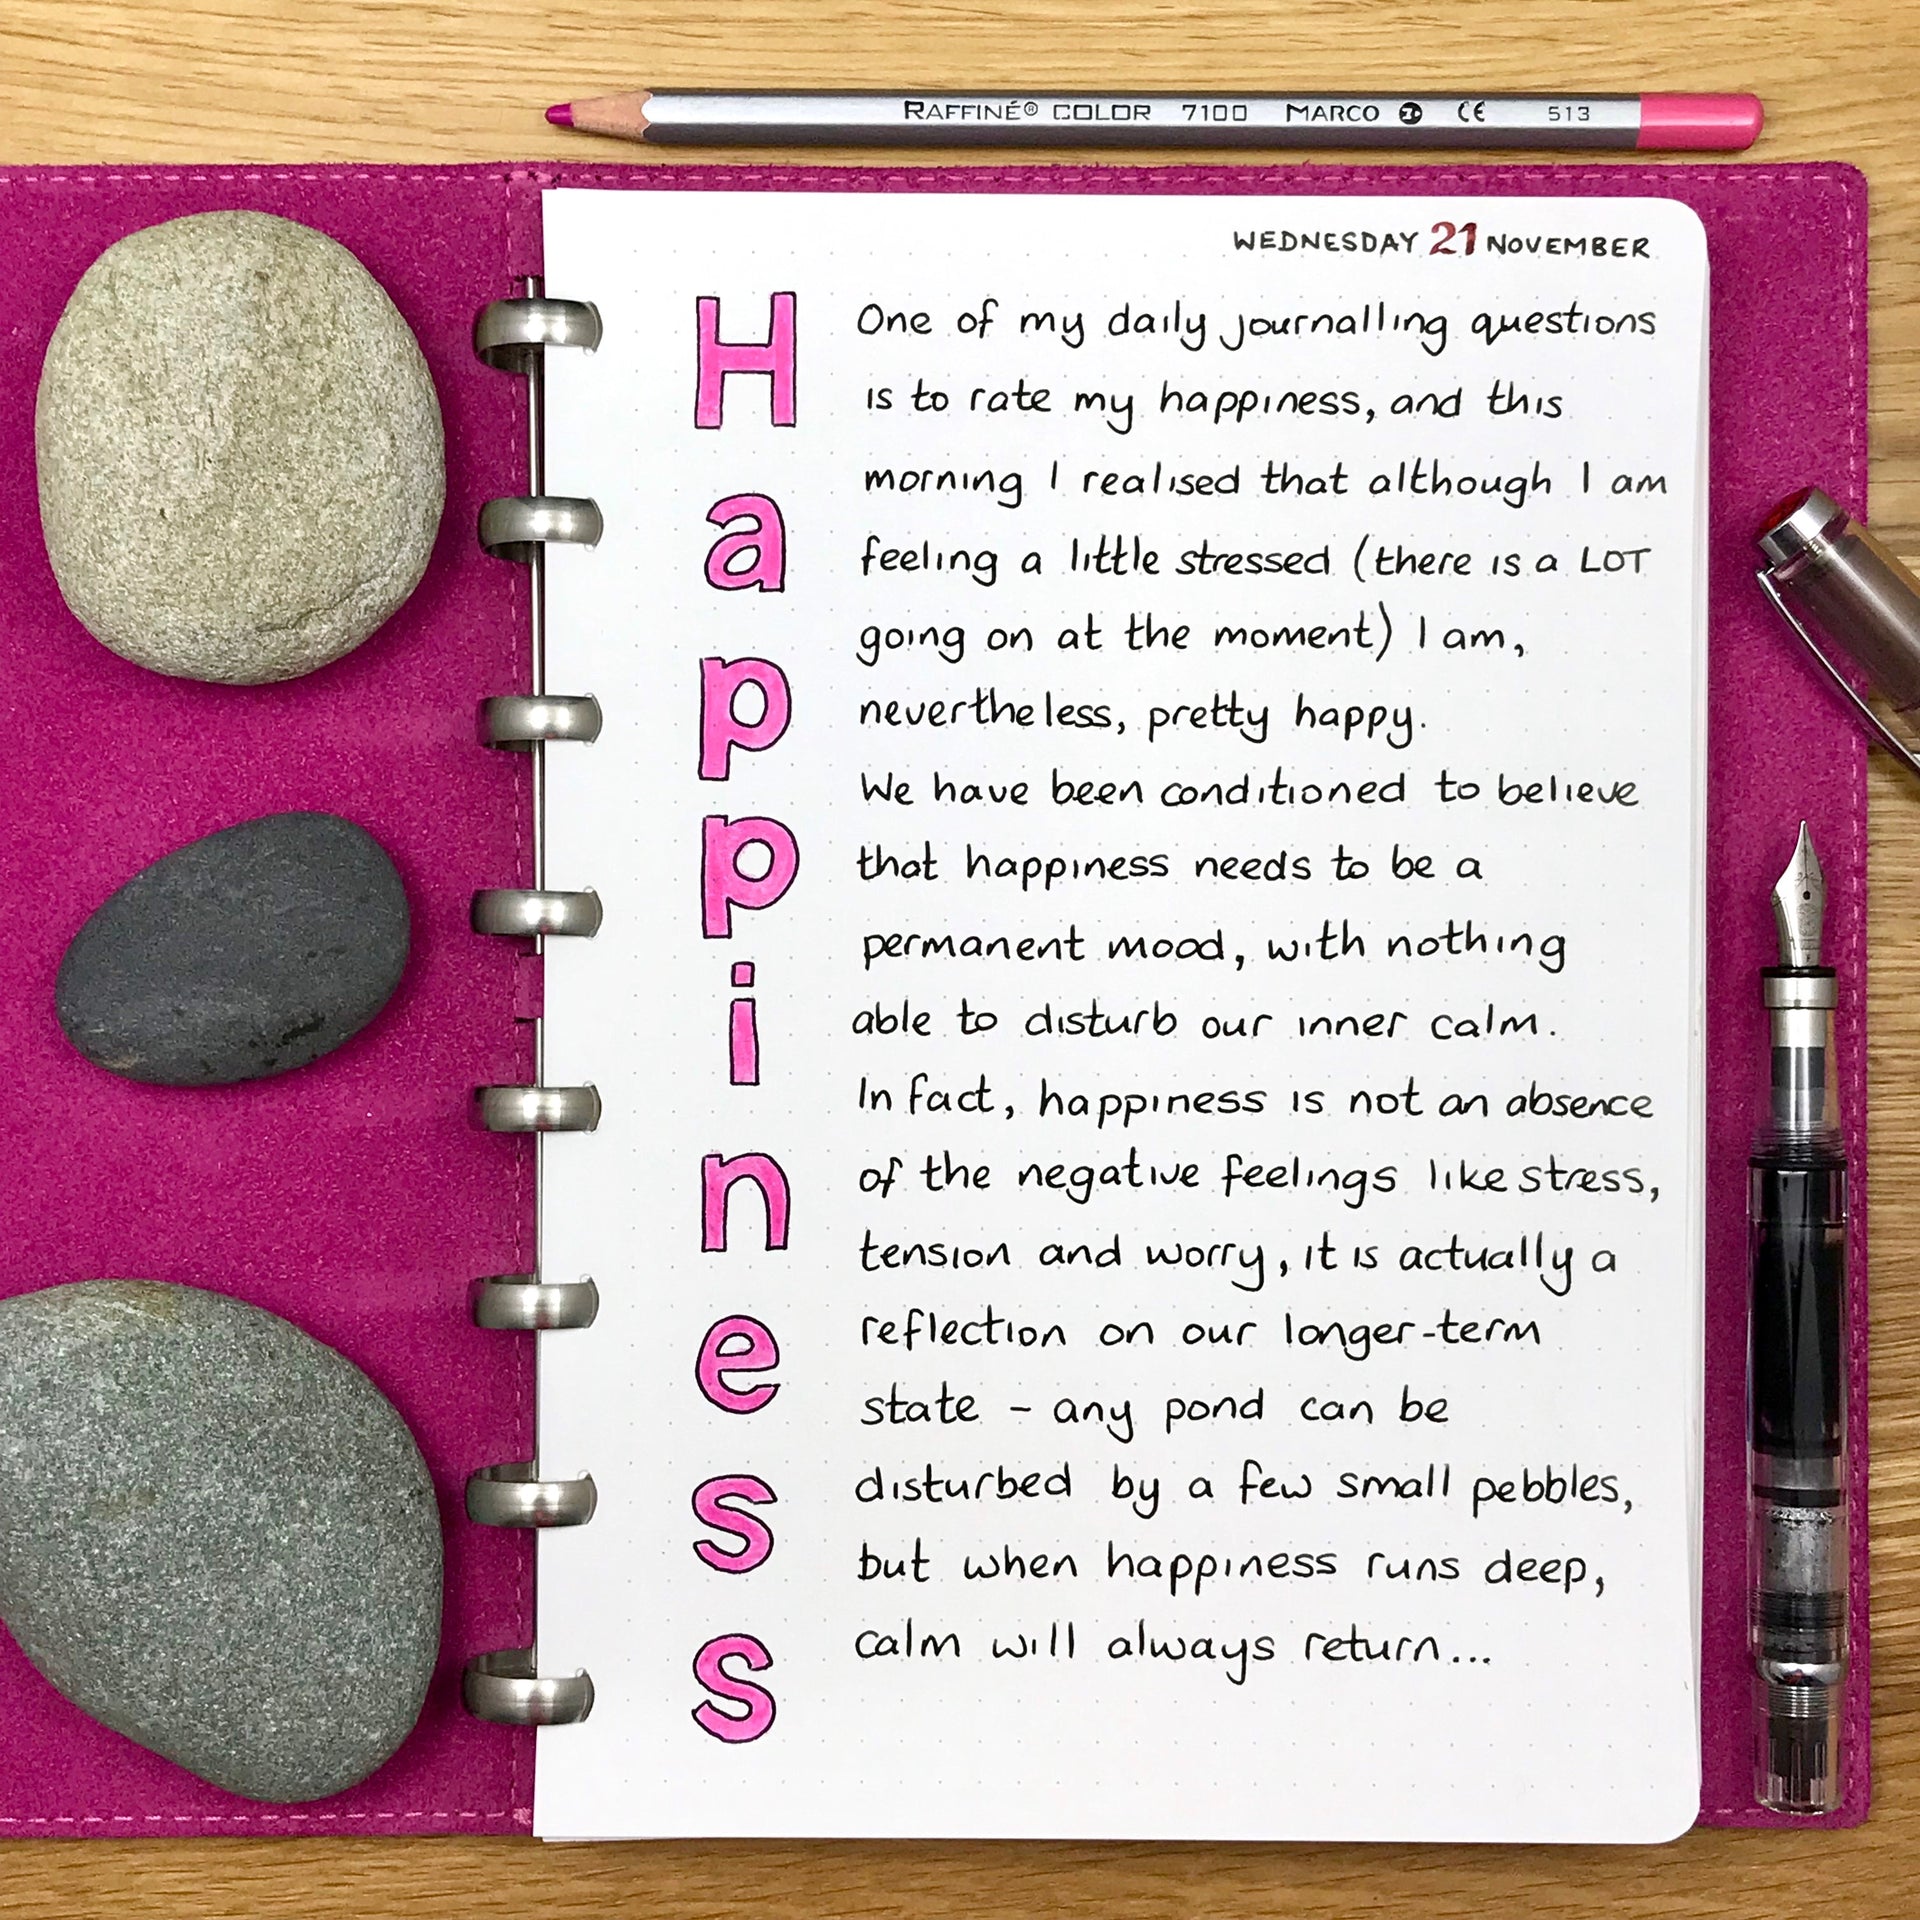 RAFFINÉ® COLOR 7100 MARCO CE 513
WEDNESDAY 21 NOVEMBER
Happiness
One of my daily journalling questions
is to rate my happiness, and this
morning I realised that although I am
feeling a little stressed (there is a LOT
going on at the moment) I am,
nevertheless, pretty happy.
We have been conditioned to believe
that happiness needs to be a
permanent mood, with nothing
able to disturb our inner calm.
In fact, happiness is not an absence
of the negative feelings like stress,
tension and worry, it is actually a
reflection on our longer-term
state - any pond can be
disturbed by a few small pebbles,
but when happiness runs deep,
calm will always return...